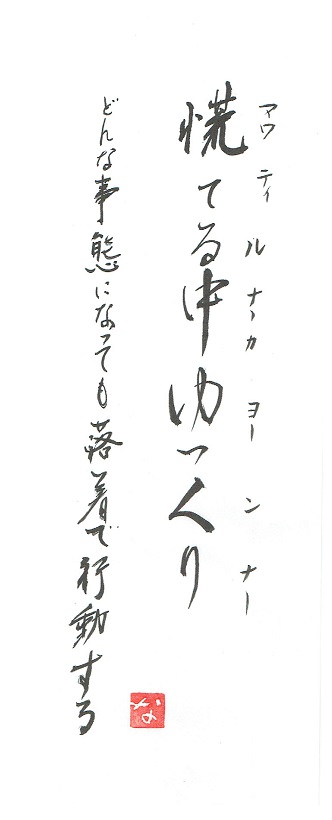 アワティルナカヨーンナー
慌てる中ゆっくり
どんな事態になっても落着で行動する
な